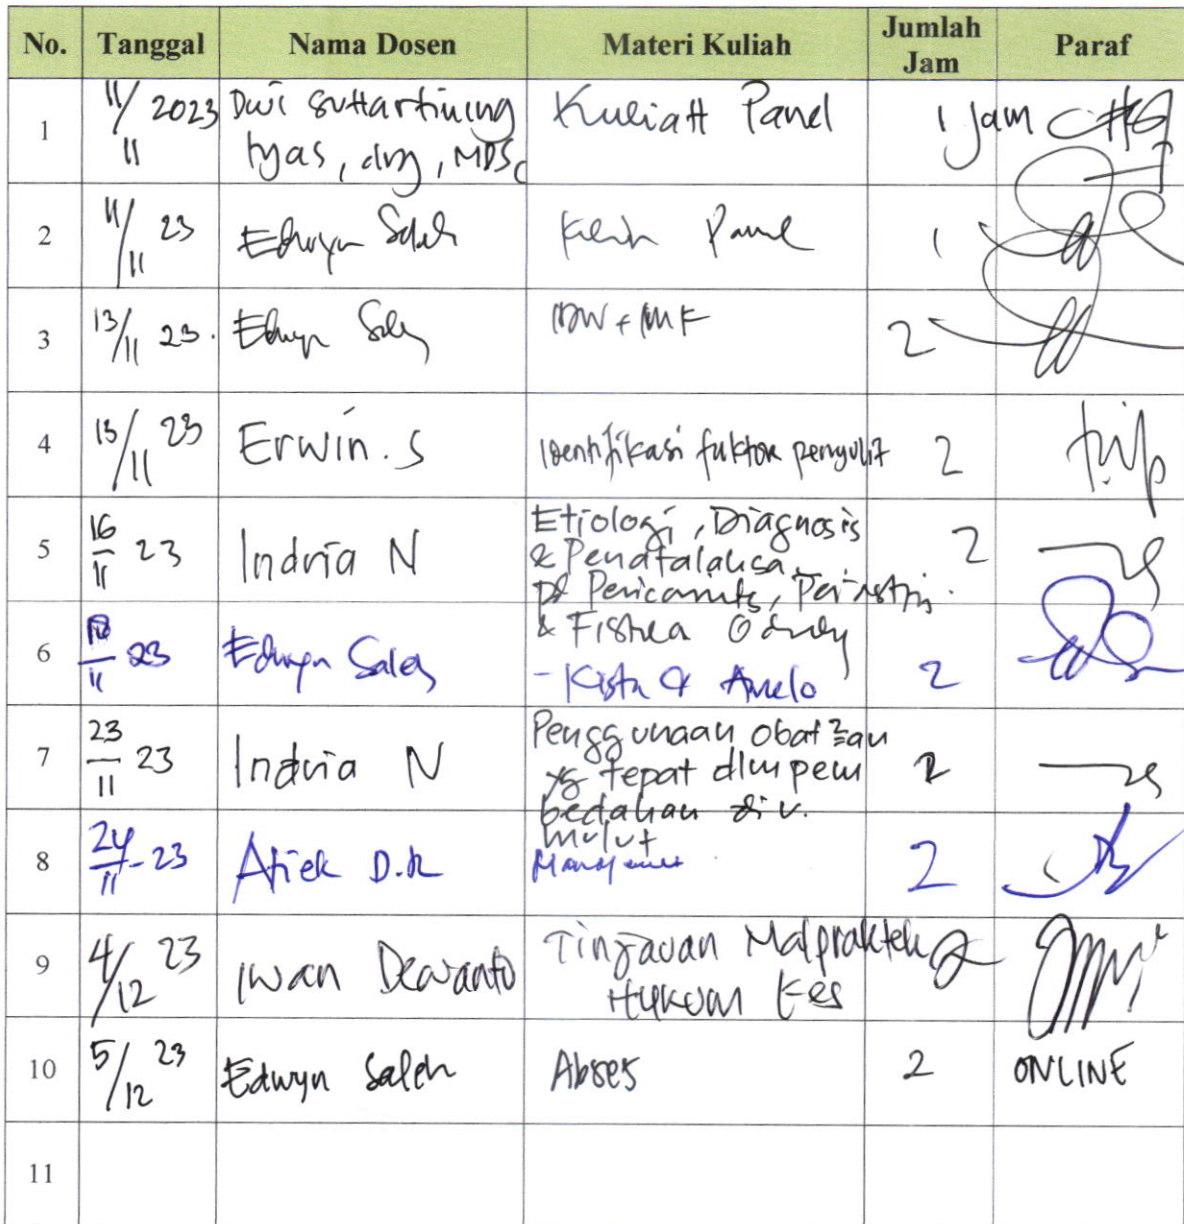 No. Tanggal Nama Dosen Materi Kuliah Jumlah Jam Paraf
1 11/11 2023 Dwi Suhartining tyas, drg, MDSc Kuliah Panel 1 jam
2 11/11 23 Edwyn Saleh Panel 1
3 13/11 23. Edwyn Saleh 2
4 13/11 23 Erwin. S Identifikasi faktor penyulit 2
5 16/11 23 Indria N Etiologi, Diagnosis
& Penatalaksa
Pericornitis,
& Fistula
6 11 23 Edwyn Saleh - Kista & Amelo 2
7 23/11 23 Indria N Penggunaan obat2an
yg tepat dlm pem
bedahan
mulut
8 24/11-23 Atiek D.K 2
9 4/12 23 Iwan Dewanto Tinjauan Malpraktek 2
Hukum Kes
10 5/12 23 Edwyn Saleh Abses 2 ONLINE
11